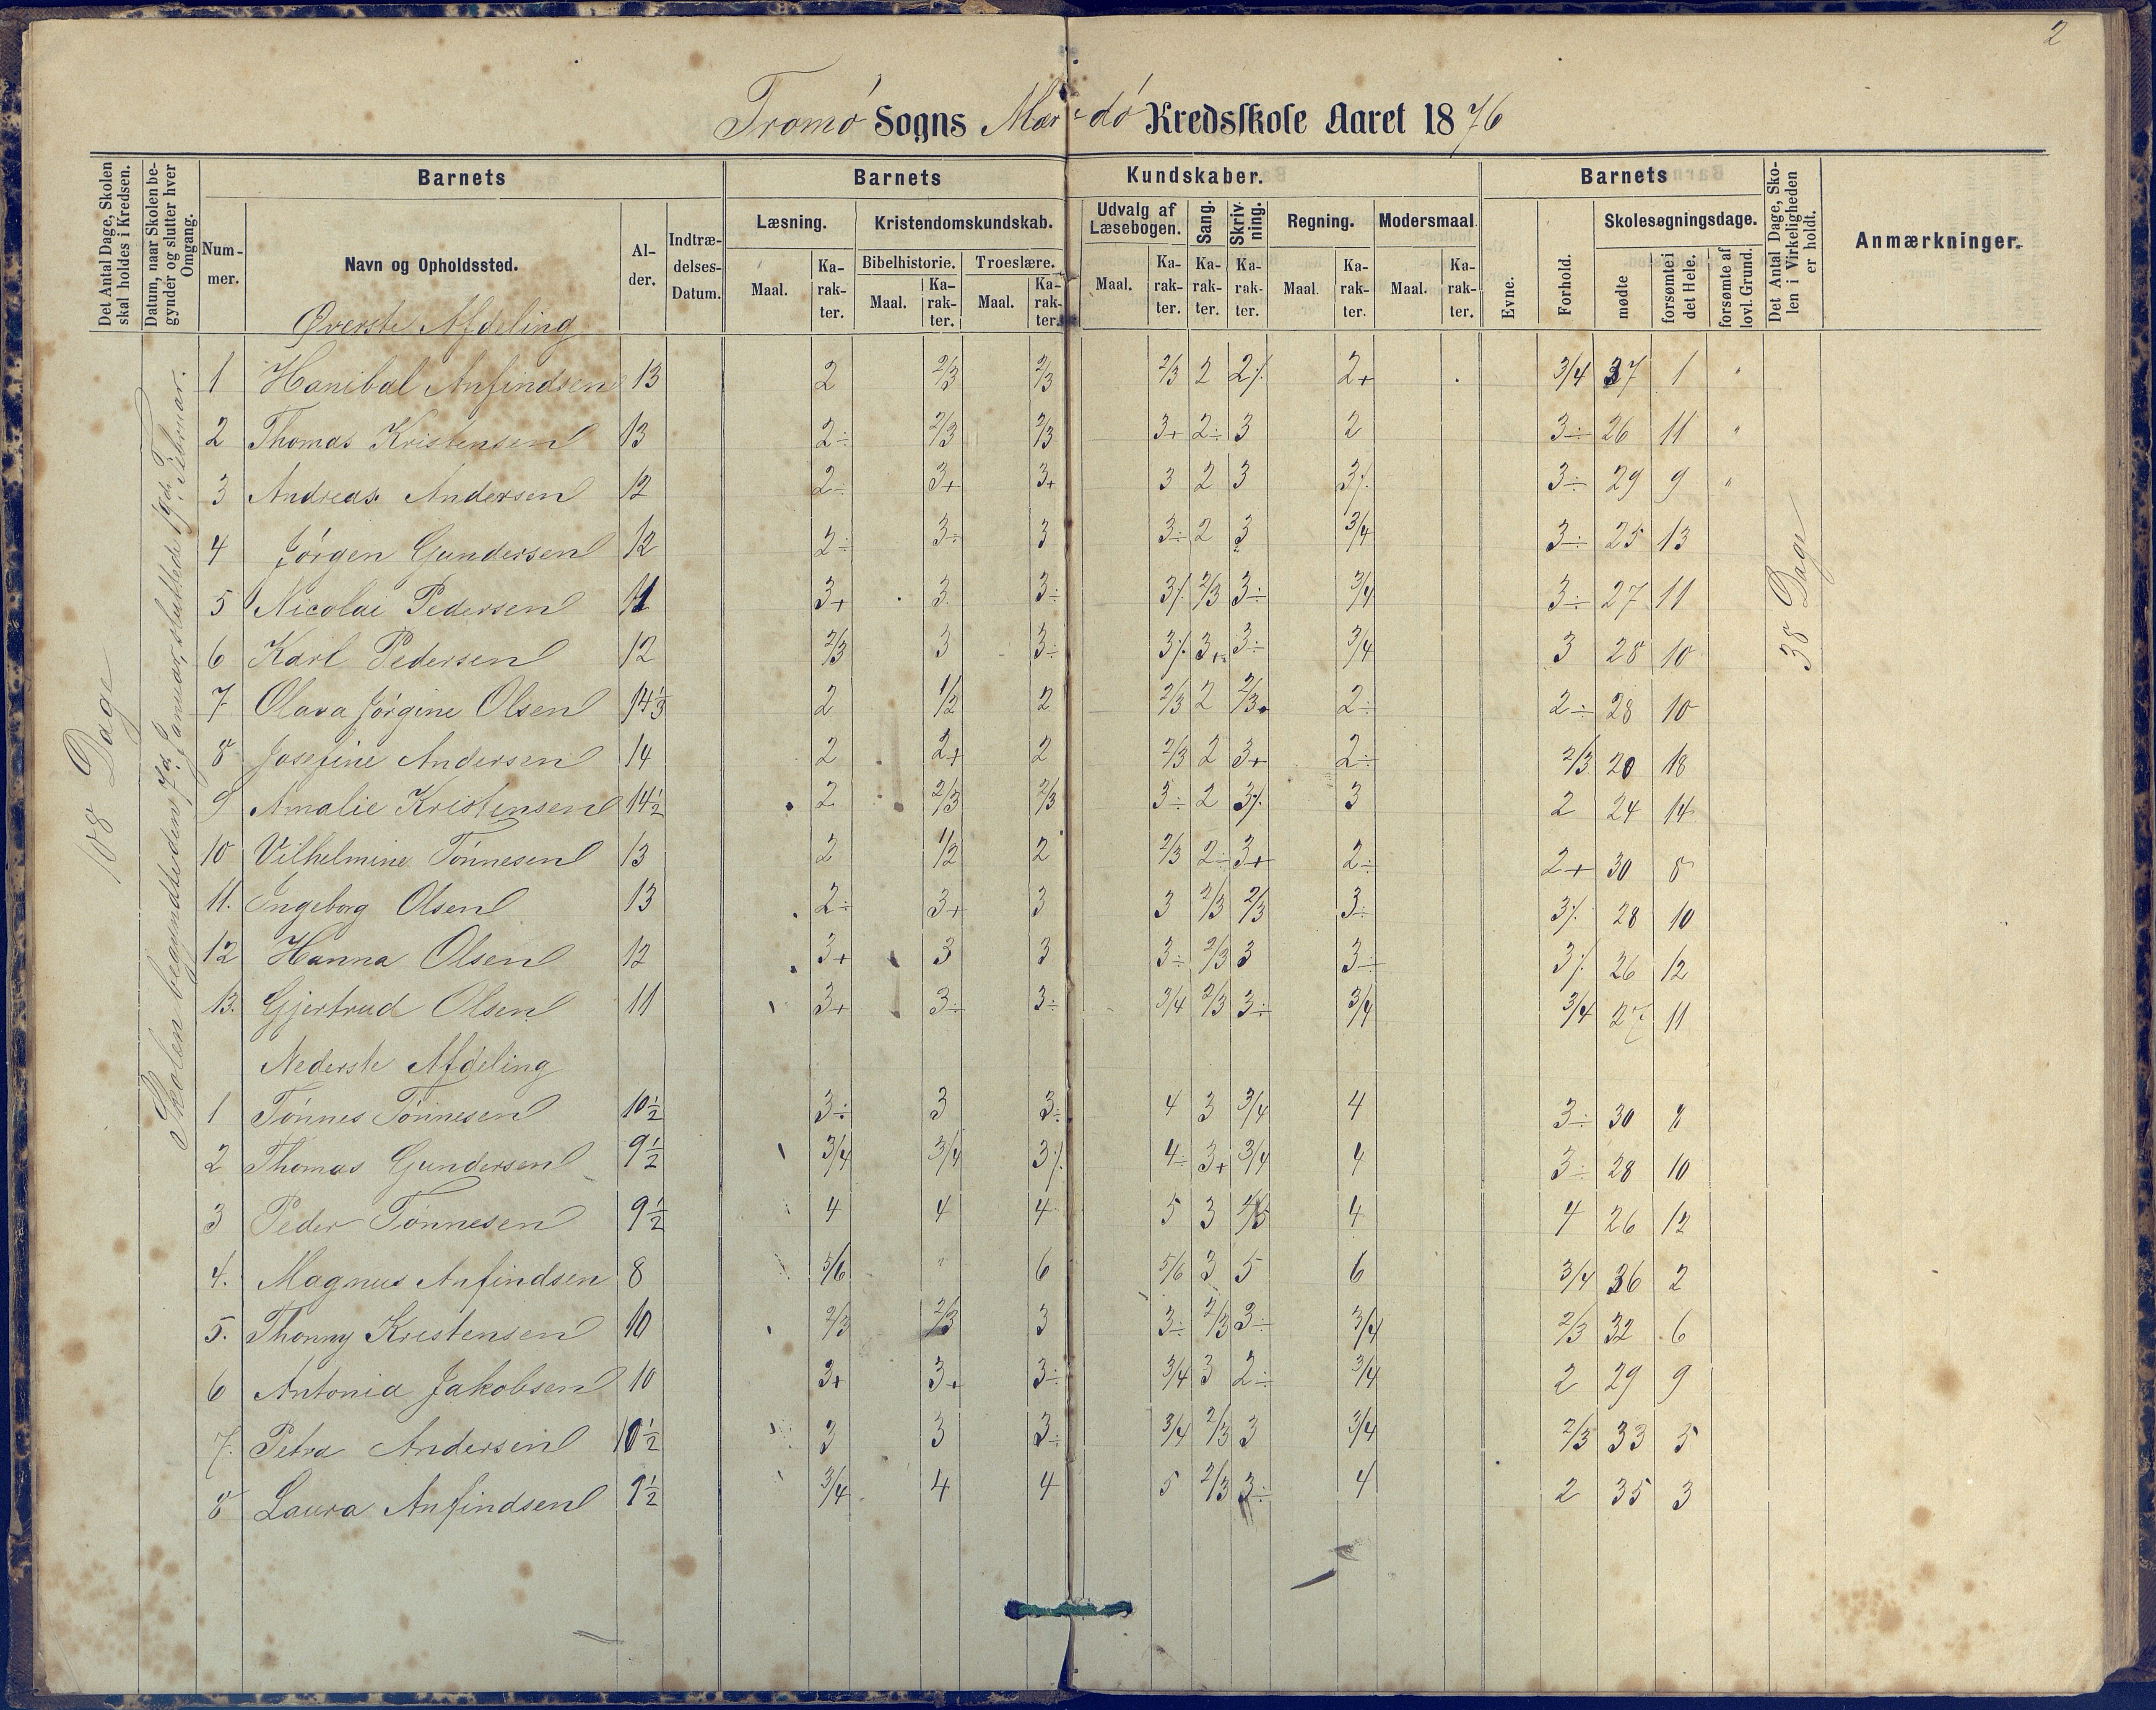 2
Tromø Sogns Mærdø Kredsskole Aaret 1876
Det Antal Dage, Skolen skal holdes i Kredsen.
Datum, naar Skolen begynder og slutter hver Omgang.
Barnets
Nummer.
Navn og Opholdssted.
Alder.
Indtrædelses-Datum.
Barnets Kundskaber.
Læsning.
Maal. Karakter.
Kristendomskundskab.
Bibelhistorie. Troeslære.
Maal. Karakter. Maal. Karakter.
Udvalg af Læsebogen.
Maal. Karakter.
Sang. Karakter.
Skrivning. Karakter.
Regning.
Maal. Karakter.
Modersmaal.
Maal. Karakter.
Barnets
Evne. Forhold.
Skolesøgningsdage.
mødte forsømte i det Hele. forsømte af lovl. Grund.
Det Antal Dage, Skolen i Virkeligheden er holdt.
Anmærkninger.
108 Dage
Skolen begyndte den 7d Januar, sluttede 19d Februar.
38 Dage
Øverste Afdeling
1 Hanibal Anfindsen 13 2 2/3 2/3 2/3 2 2÷ 2+ 3/4 37 1 "
2 Thomas Kristensen 13 2÷ 2/3 2/3 3+ 2÷ 3 2 3÷ 26 11 "
3 Andreas Andersen 12 2÷ 3+ 3+ 3 2 3 3÷ 3÷ 29 9 "
4 Jørgen Gundersen 12 2÷ 3÷ 3 3÷ 2 3 3/4 3÷ 25 13
5 Nicolai Pedersen 11 3+ 3 3÷ 3÷ 2/3 3÷ 3/4 3÷ 27 11
6 Karl Pedersen 12 2/3 3 3÷ 3÷ 3+ 3÷ 3/4 3 28 10
7 Olava Jørgine Olsen 14 1/3 2 1/2 2 2/3 2 2/3 2÷ 2÷ 28 10
8 Josefine Andersen 14 2 2+ 2 2/3 2 3+ 2÷ 2/3 20 18
9 Amalie Kristensen 14 1/2 2 2/3 2/3 3÷ 2 3÷ 3 2 24 14
10 Vilhelmine Tønnesen 13 2 1/2 2 2/3 2÷ 3+ 2÷ 2+ 30 8
11. Ingeborg Olsen 13 2÷ 3+ 3 3 2/3 2/3 3÷ 3÷ 28 10
12 Hanna Olsen 12 3+ 3 3 3÷ 2/3 3 3÷ 3÷ 26 12
13. Gjertrud Olsen 11 3+ 3÷ 3÷ 3/4 2/3 3÷ 3/4 3/4 27 11
Nederste Afdeling
1 Tønnes Tønnesen 10 1/2 3÷ 3 3÷ 4 3 3/4 4 3÷ 30 8
2 Thomas Gundersen 9 1/2 3/4 3/4 3÷ 4÷ 3+ 3/4 4 3÷ 28 10
3 Peder Tønnesen 9 1/2 4 4 4 5 3 4/5 4 4 26 12
4. Magnus Anfindsen 8 5/6 " 6 5/6 3 5 6 3/4 36 2
5. Thonny Kristensen 10 2/3 2/3 3 3÷ 2/3 3÷ 3/4 2/3 32 6
6 Antonia Jakobsen 10 3+ 3+ 3÷ 3/4 3 2÷ 3/4 2 29 9
7. Petra Andersen 10 1/2 3 3 3÷ 3/4 2/3 3 3/4 2/3 33 5
8 Laura Anfindsen 9 1/2 3/4 4 4 5 2/3 3÷ 4 2 35 3